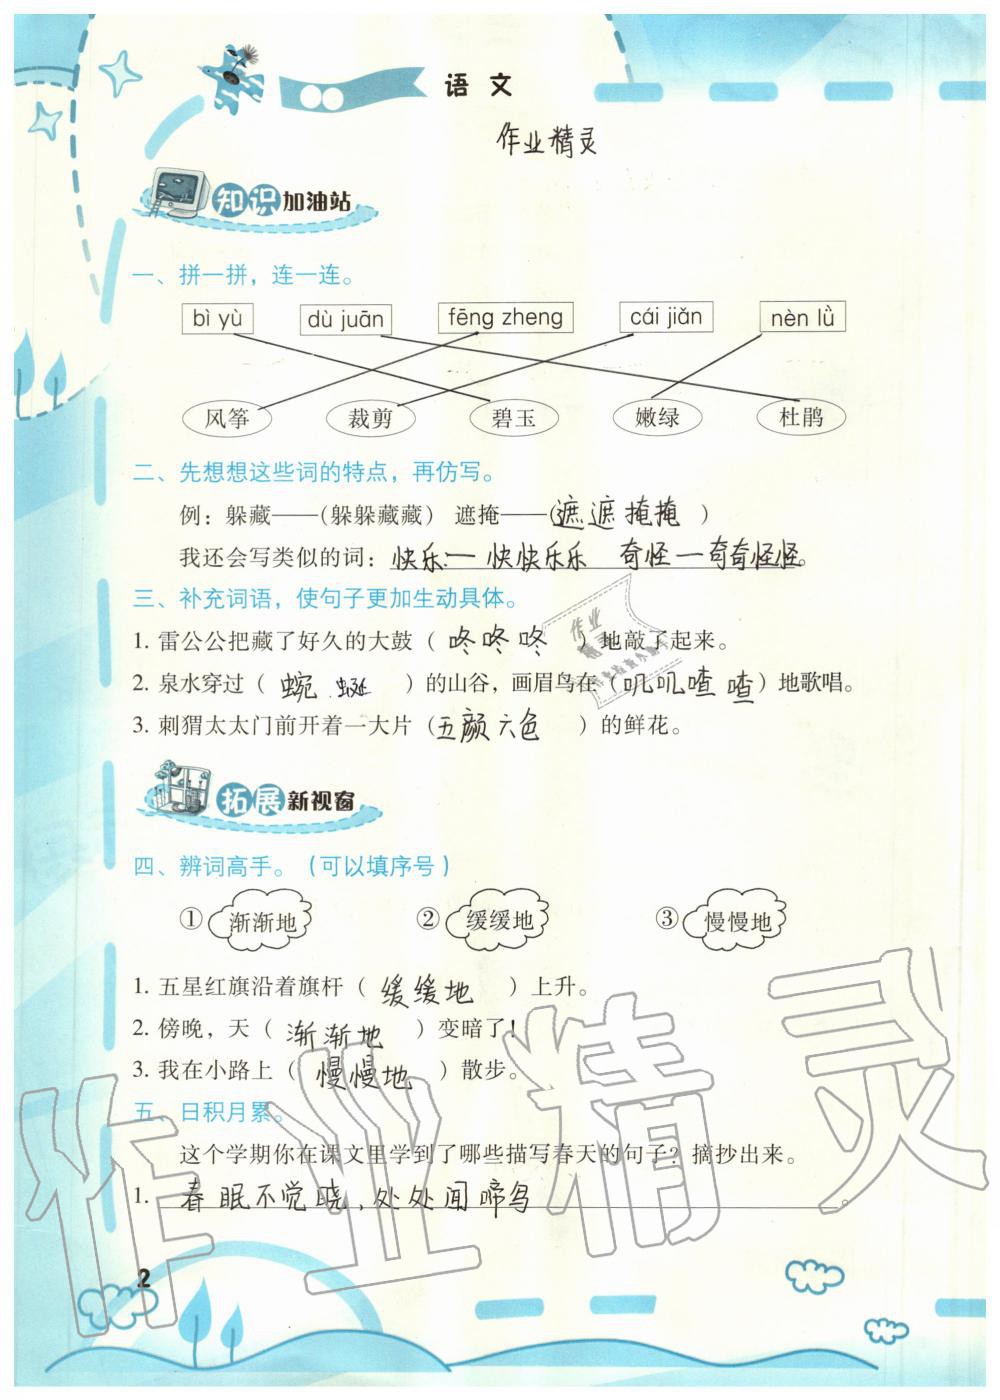 语 文
作业精灵
知识加油站
一、拼一拼，连一连。
bì yù dù juān fēng zheng cái jiǎn nèn lǜ
风筝 裁剪 碧玉 嫩绿 杜鹃
二、先想想这些词的特点，再仿写。
例：躲藏——(躲躲藏藏) 遮掩——(遮遮掩掩)
我还会写类似的词：快乐——快快乐乐 奇怪—奇奇怪怪。
三、补充词语，使句子更加生动具体。
1. 雷公公把藏了好久的大鼓（咚咚咚）地敲了起来。
2. 泉水穿过（蜿蜒）的山谷，画眉鸟在（叽叽喳喳）地歌唱。
3. 刺猬太太门前开着一大片（五颜六色）的鲜花。
拓展新视窗
四、辨词高手。（可以填序号）
① 渐渐地 ② 缓缓地 ③ 慢慢地
1. 五星红旗沿着旗杆（缓缓地）上升。
2. 傍晚，天（渐渐地）变暗了！
3. 我在小路上（慢慢地）散步。
五、日积月累。
这个学期你在课文里学到了哪些描写春天的句子？摘抄出来。
1. 春眠不觉晓，处处闻啼鸟。
2
作业精灵